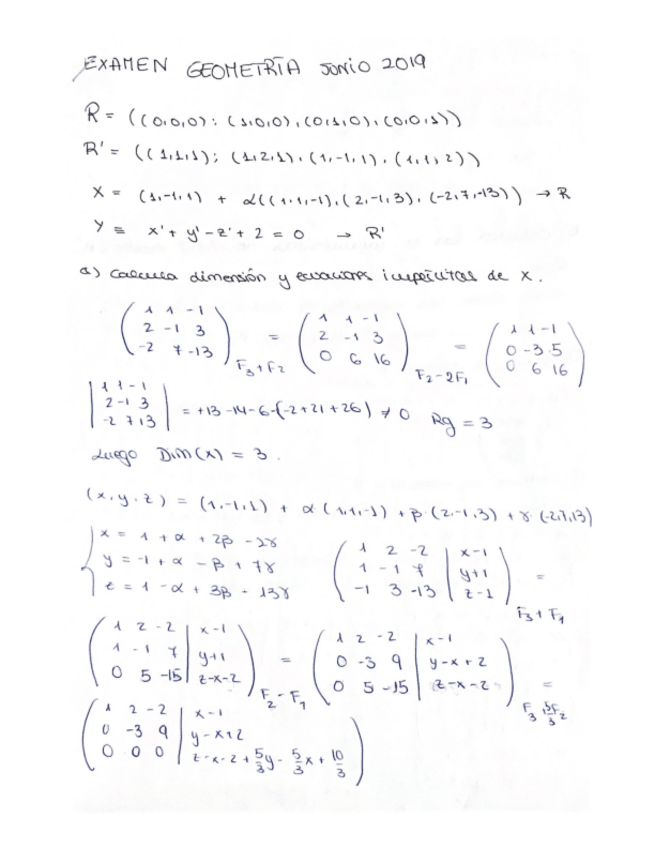 EXAMEN GEOMETRÍA JUNIO 2019
R = ((0,0,0); (1,0,0), (0,1,0), (0,0,1))
R' = ((1,1,1); (1,2,1), (1,-1,1), (1,1,2))
X = (1,-1,1) + α((1,1,-1), (2,-1,3), (-2,7,-13)) → R
Y ≡ x' + y' - z' + 2 = 0 → R'
a) Calcula dimensión y ecuaciones implícitas de X.
( 1 1 -1 ; 2 -1 3 ; -2 7 -13 ) F3+F2 = ( 1 1 -1 ; 2 -1 3 ; 0 6 16 ) F2-2F1 = ( 1 1 -1 ; 0 -3 5 ; 0 6 16 )
| 1 1 -1 ; 2 -1 3 ; -2 7 13 | = +13 -14 -6 -(-2+21+26) ≠ 0 Rg = 3
Luego Dim(X) = 3.
(x,y,z) = (1,-1,1) + α(1,1,-1) + β·(2,-1,3) + γ·(-2,7,13)
x = 1 + α + 2β - 2γ
y = -1 + α - β + 7γ
z = 1 - α + 3β - 13γ
( 1 2 -2 | x-1 ; 1 -1 7 | y+1 ; -1 3 -13 | z-1 ) F3+F1 =
( 1 2 -2 | x-1 ; 1 -1 7 | y+1 ; 0 5 -15 | z-x-2 ) F2-F1 = ( 1 2 -2 | x-1 ; 0 -3 9 | y-x+2 ; 0 5 -15 | z-x-2 ) F3+5/3F2 =
( 1 2 -2 | x-1 ; 0 -3 9 | y-x+2 ; 0 0 0 | z-x-2+5/3y-5/3x+10/3 )